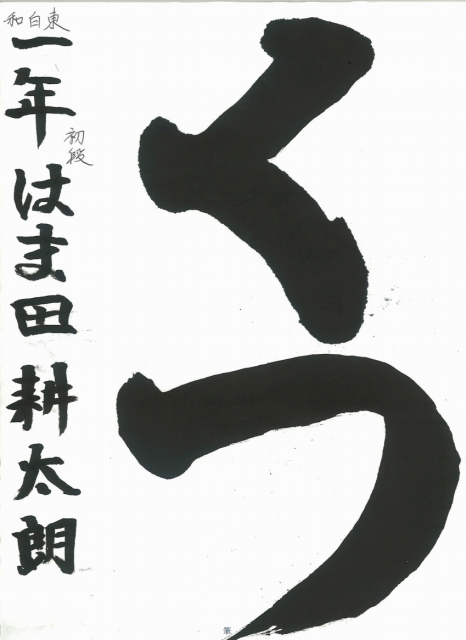 くつ
東白和
一年はま田耕太朗
初段